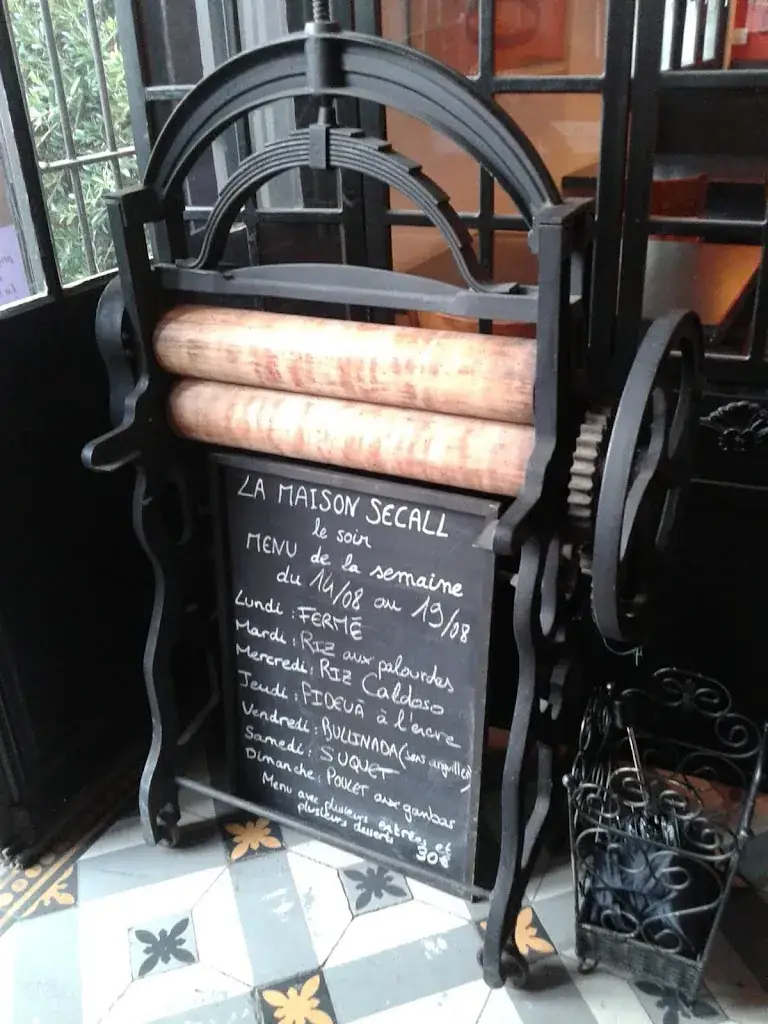 LA MAISON SECALL
le soir
MENU de la semaine
du 14/08 au 19/08
Lundi : FERMÉ
Mardi : RIZ aux palourdes
Mercredi : RIZ Caldoso
Jeudi : FIDEUÀ à l'encre
Vendredi : BULLINADA (sans anguilles)
Samedi : SUQUET
Dimanche : POULET aux gambas
Menu avec plusieurs entrées et
plusieurs desserts
30€